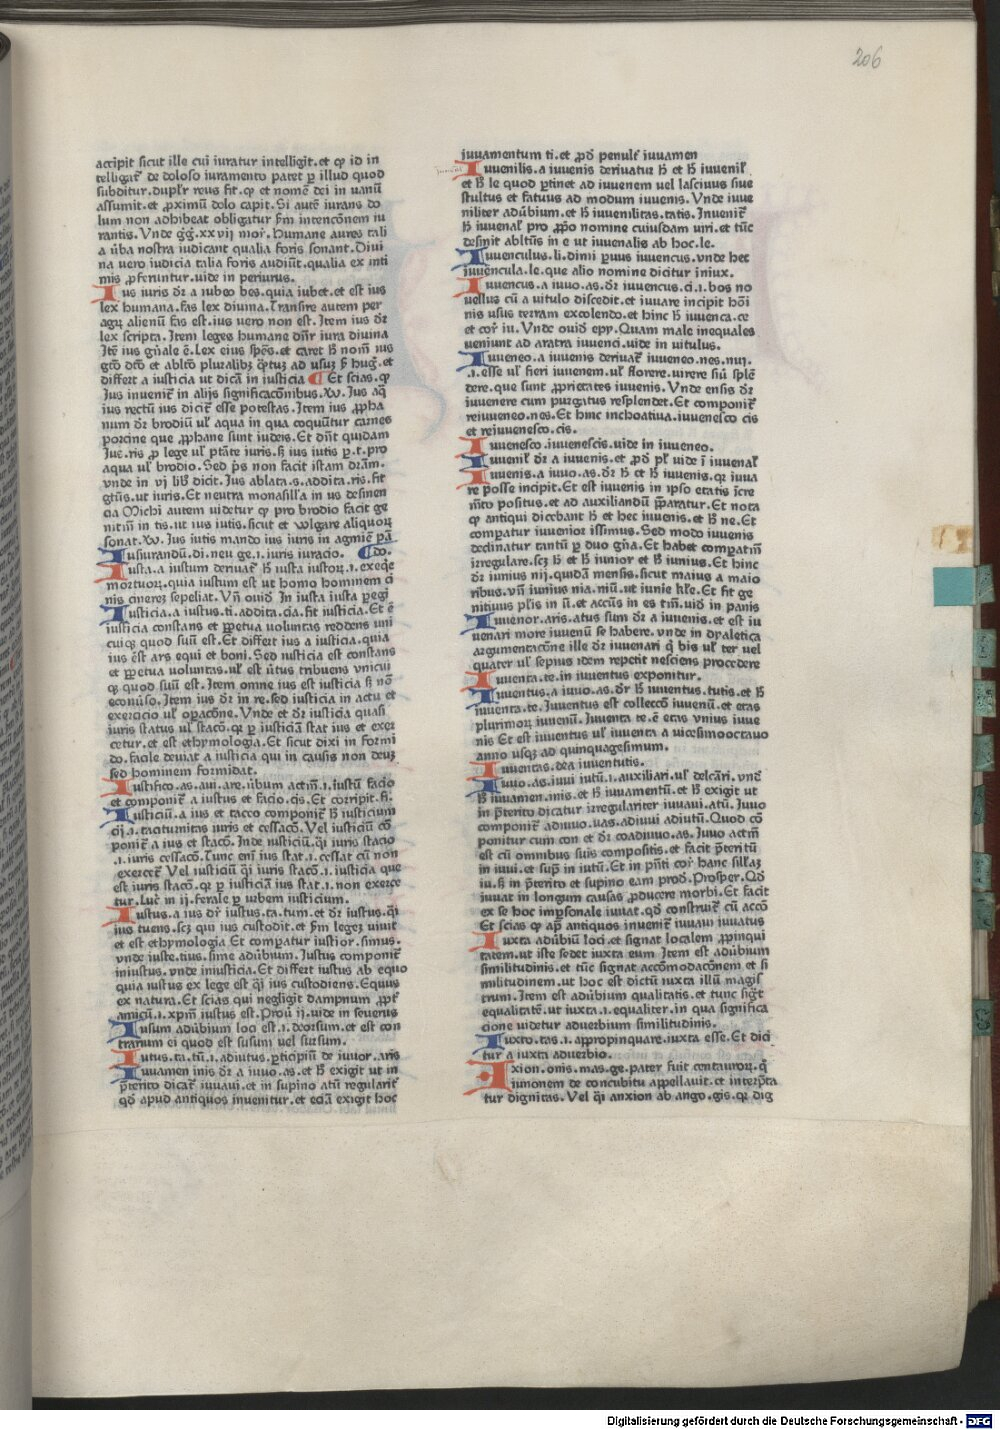 206
accipit sicut ille cui iuratur intelligit.et qꝫ id in
telligit᷑ de doloso iuramento patet ꝑ illud quod
subditur.duplr̄ reus fit.qꝫ et nomē dei in uanū
assumit.et ꝓximū dolo capit. Si autē iurans do
lum non adhibeat obligatur ſm intencōnem iu
rantis. Vnde gḡ.xxvij mor̄. Humane aures tali
a ūba nostra iudicant qualia foris sonant. Diui
na uero iudicia talia foris audiūt.qualia ex inti
mis ꝓferuntur.uide in periurus.
Ius iuris dr̄ a iubeo bes.quia iubet.et est ius
lex humana. fas lex diuina. Transire autem per
agrꝫ alienū fas est.ius uero non est. Item ius dr̄
lex scripta. Item leges humane dn̄r iura diuina
Itē ius gn̄ale ē. Lex eius spēs.et caret ħ nom̄ ius
gtō dtō et abltō pluralibꝫ ꝙtuꝫ ad usuꝫ ſ huḡ.et
differt a iusticia ut dicā in iusticia ¶ Et scias.qꝫ
Ius inuenit᷑ in alijs significacōnibus.xv. Ius aq̄
ius rectū ius dicit᷑ esse potestas. Item ius ꝓpha
num dr̄ brodiū ul᷑ aqua in qua coquūtur carnes
porcine que ꝓphane sunt iudeis. Et dn̄t quidam
Iuē.ris ꝓ lege ul᷑ ptāte iuris.ſꝫ ius iutis ꝑ.t.pro
aqua ul᷑ brodio. Sed pr̄s non facit istam dr̄am.
vnde in vj lib̄ dicit. Ius ablata.s.addita.ris.fit
gtūs.ut iuris. Et neutra monasilla in us desinen
cia Michi autem uidetur qꝫ pro brodio facit ge
nitiū in tis.ut ius iutis.sicut et wlgare aliquorꝫ
sonat.xv. Ius iutis mando ius iuris in agmīe pā
Iusiurandū.di.neu ge.i.iuris iuracio. ¶do.
Iusta.a iustum deriuat᷑ ħ iusta iustorꝫ.i.exeqe
mortuorꝫ.quia iustum est ut homo hominem ci
nis cinereꝫ sepeliat. Vn̄ ouid̄ In iusta iusta ꝑegi
Iusticia.a iustus.ti.addita.cia.fit iusticia. Et ē
iusticia constans et ꝑpetua uoluntas reddens uni
cuiqꝫ quod suū est. Et differt ius a iusticia.quia
ius ēst ars equi et boni. Sed iusticia est constans
et ꝑpetua uoluntas.ul᷑ est ūtus tribuens vnicui
qꝫ quod suū est. Item omne ius est iusticia ſꝫ nō
econūso. Item ius dr̄ in re.sed iusticia in actu et
exercicio ul᷑ opacōne. Vnde et dr̄ iusticia quasi
iuris status ul᷑ stacō.qꝛ ꝑ iusticiā stat ius et exer
cetur.et est ethymologia. Et sicut dixi in formi
do.facile deuiat a iusticia qui in causis non deuꝫ
sed hominem formidat.
Iustifico.as.aui.are.ūbum actiū.i.iustū facio
et componit᷑ a iustus et facio.cis. Et corripit.fi.
Iusticiū.a ius et tacco componit᷑ ħ iusticium
cij.i.taciturnitas iuris et cessacō. Vel iusticiū cō
ponit᷑ a ius et stacō. Inde iusticiū.q̄i iuris stacio
.i.iuris cessacō. Tunc enī ius stat.i.cessat cū non
exercet᷑ Vel iusticiū q̄i iuris stacō.i.iusticia que
est iuris stacō.qꝛ ꝑ iusticiā ius stat.i.non exerce
tur. Luc̄ in ij.ferale ꝑ urbem iusticium.
Iustus.a ius dr̄ iustus.ta.tum.et dr̄ iustus.q̄i
ius tuens.scꝫ qui ius custodit.et ſm legeꝫ uiuit
et est ethymologia Et compatur iustior.simus.
vnde iuste.tius.sime adūbium. Iustus componit᷑
iniustus.vnde iniusticia. Et differt iustus ab equo
quia iustus ex lege est q̄i ius custodiens. Equus
ex natura. Et scias qui negligit dampnum ꝓpt᷑
amicū.i.xpm̄ iustus est. Prou ij.uide in seuerus
Iusum adūbium loci est.i.deorsum.et est con
trarium ei quod est susum uel sursum.
Iutus.ta.tū.i.adiutus.ꝑticipiū de iuuor.aris
Iuuamen inis dr̄ a iuuo.as.et ħ exigit ut in
ꝑterito dicat᷑ iuuaui.et in supino atū regularit᷑
qd̄ apud antiquos inuenitur.et eciā exigit hoc
iuuamentum ti.et ꝓd̄ penult᷑ iuuamen
Iuuenilis.a iuuenis deriuatur ħ et ħ iuuenil᷑
et ħ le quod ꝑtinet ad iuuenem uel lasciuus siue
stultus et fatuus ad modum iuuenis. Vnde iuue
niliter adūbium.et ħ iuuenilitas.tatis. Inuenit᷑
ħ iuuenal᷑ pro ꝓpo nomine cuiusdam uiri.et tūc
desinit abltūs in e ut iuuenalis ab hoc.le.
Iuuenculus.li.dimi ꝑuus iuuencus.vnde hec
iuuēncula.le.que alio nomine dicitur iniux.
Iuuencus.a iuuo.as.dr̄ iuuencus.ci.i.bos no
uellus cū a uitulo discedit.et iuuare incipit hōi
nis usus terram excolendo.et hinc ħ iuuenca.ce
et cor̄ iu. Vnde ouid̄ epy. Quam male inequales
ueniunt ad aratra iuuenci.uide in uitulus.
Iuueneo.a iuuenis deriuat᷑ iuueneo.nes.nui.
.i.esse ul᷑ fieri iuuenem.ul᷑ florere.uirere siū splē
dere.que sunt ꝓprietates iuuenis. Vnde ensis dr̄
iuuenere cum purgatus resplendet. Et componit᷑
reiuueneo.nes. Et hinc inchoatiua.iuuenesco cis
et reiuuenesco.cis.
Iuuenesco.iuuenescis.uide in iuueneo.
Iuuenil᷑ dr̄ a iuuenis.et ꝓd̄ pl᷑ uide ī iuuenal᷑
Iuuenis.a iuuo.as.dr̄ ħ et ħ iuuenis.qꝛ iuua
re posse incipit. Et est iuuenis in ipso etatis īcre
mēto positus.et ad auxiliandū ꝑparatur. Et nota
qꝫ antiqui dicebant ħ et hec iuuenis.et ħ ne. Et
compatur iuuenior issimus. Sed modo iuuenis
declinatur tantū ꝑ duo gn̄a. Et habet compatiū
irregulare.scꝫ ħ et ħ iunior et ħ iunius. Et hinc
dr̄ iunius nij.quidā mensis.sicut maius a maio
ribus.vn̄ iunius nia.niū.ut iunie kl̄e. Et fit ge
nitiuus pl̄is in ū.et accūs in es tm̄.uid̄ in panis
Iuuenor.aris.atus sum dr̄ a iuuenis.et est iu
uenari more iuuenū se habere.vnde in dyaletica
argumentacōne ille dr̄ iuuenari q̄ bis ul᷑ ter uel
quater ul᷑ sepius idem repetit nesciens procedere
Iuuenta.te.in iuuentus exponitur.
Iuuentus.a iuuo.as.dr̄ ħ iuuentus.tutis.et ħ
iuuenta.te. Iuuentus est collecco iuuenū.et etas
plurimorꝫ iuuenū. Iuuenta.te.ē etas vnius iuue
nis Et est iuuentus ul᷑ iuuenta a uicesimooctauo
anno usqꝫ ad quinquagesimum.
Iuuentas.dea iuuentutis.
Iuuo.as.iuui iutū.i.auxiliari.ul᷑ delcāri.vnd̄
ħ iuuamen.inis.et ħ iuuamentū.et ħ exigit ut
in ꝑterito dicatur irregulariter iuuaui.atū. Iuuo
componit᷑ adiuuo.uas.adiuui adiutū. Quod cō
ponitur cum con et dr̄ coadiuuo.as. Iuuo actiū
est cū omnibus suis compositis.et facit ꝑteritū
in iuui.et sup̄ in iutū. Et in pn̄ti cor̄ hanc sillaꝫ
iu.ſꝫ in ꝑterito et supino eam prod̄. Prosper. Qd̄
iuuat in longum causas ꝓducere morbi. Et facit
ex se hoc imꝑsonale iuuat.qd̄ construit᷑ cū accō
Et scias qꝫ ap̄ antiquos inuenit᷑ iuuaui iuuatus
Iuxta adūbiū loci.et signat localem ꝓpinqui
tatem.ut iste sedet iuxta eum Item est adūbium
similitudinis.et tūc signat accōmodacōnem et si
militudinem.ut hoc est dictū iuxta illū magis
trum. Item est adūbium qualitatis.et tunc siḡt
equalitatē.ut iuxta.i.equaliter.in qua significa
cione uidetur aduerbium similitudinis.
Iuxto.tas.i.appropinquare.iuxta esse. Et dici
tur a iuxta aduerbio.
Ixion.onis.mas.ge.pater fuit centaurorꝫ.q̄
iunonem de concubitu appellauit.et interp̄ta
tur dignitas. Vel q̄i anxion ab ango.gis.qꝛ dig
Digitalisierung gefördert durch die Deutsche Forschungsgemeinschaft - DFG